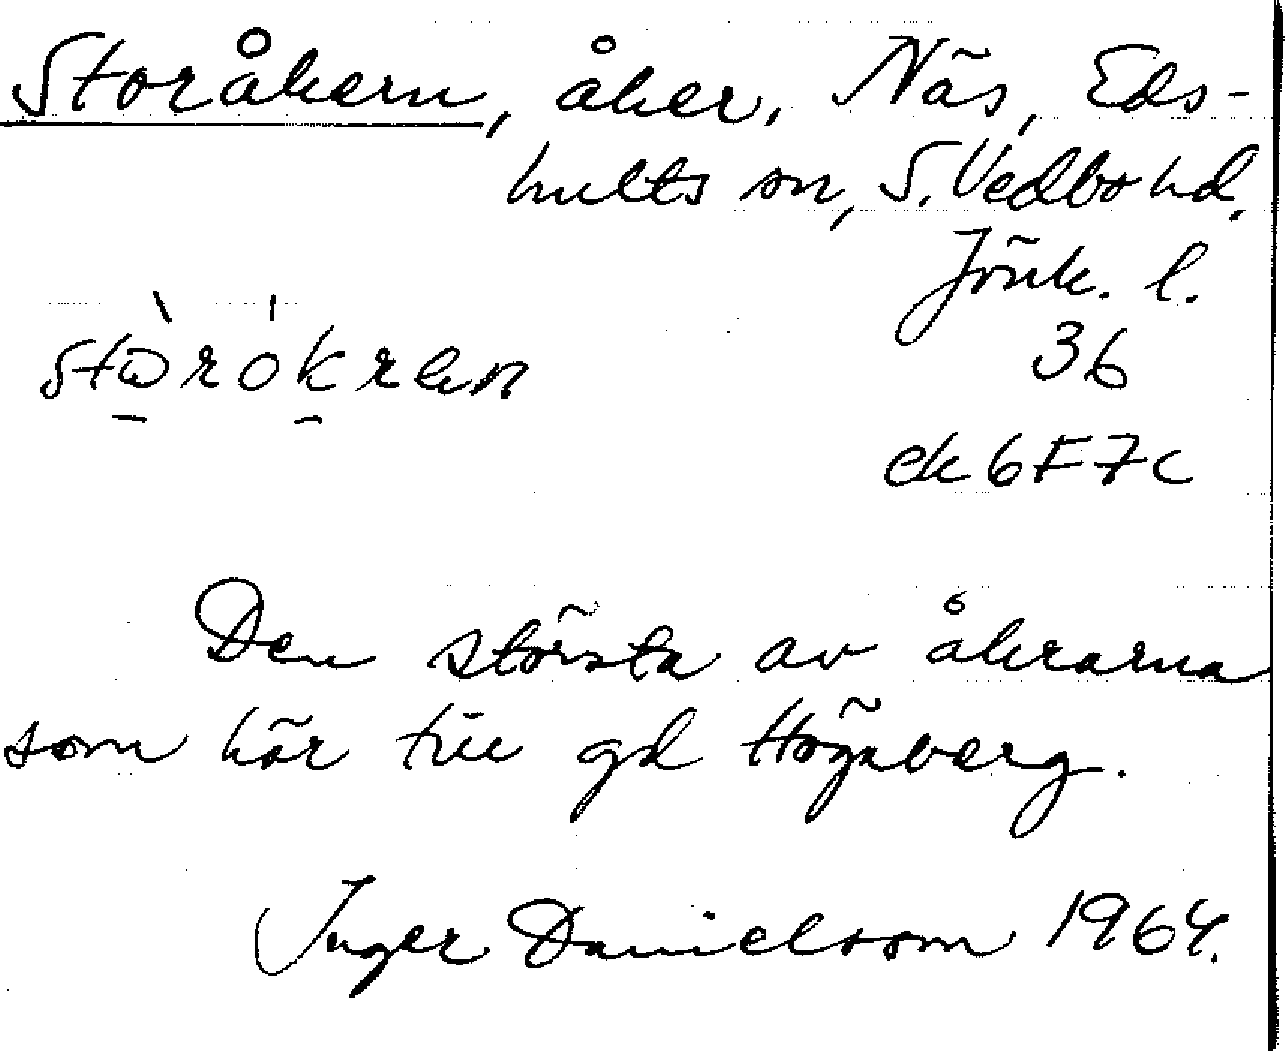 Storåkern, åker, Näs, Eds-
hults sn, S. Vedbo hd,
Jönk. l.
stòrókren
36
ek 6F7c
Den största av åkrarna
som hör till gd Högaberg.
Inger Danielsson 1964.